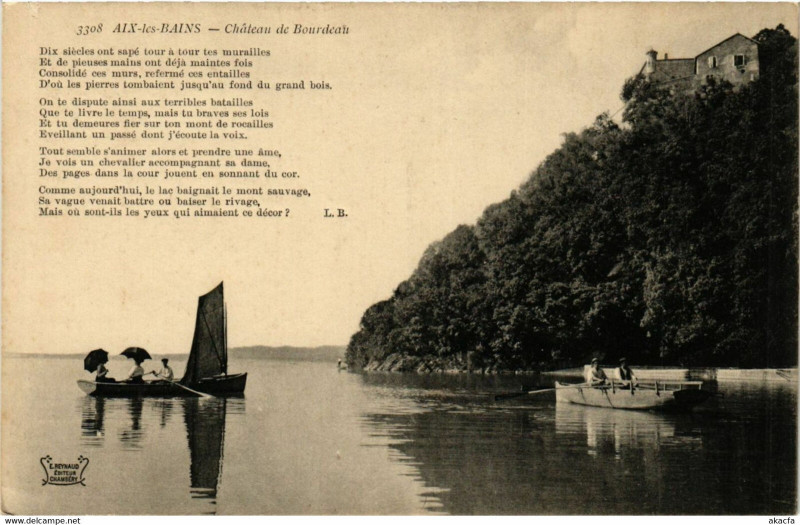 3308 AIX-les-BAINS — Château de Bourdeau
Dix siècles ont sapé tour à tour tes murailles
Et de pieuses mains ont déjà maintes fois
Consolidé ces murs, refermé ces entailles
D'où les pierres tombaient jusqu'au fond du grand bois.
On te dispute ainsi aux terribles batailles
Que te livre le temps, mais tu braves ses lois
Et tu demeures fier sur ton mont de rocailles
Eveillant un passé dont j'écoute la voix.
Tout semble s'animer alors et prendre une âme,
Je vois un chevalier accompagnant sa dame,
Des pages dans la cour jouent en sonnant du cor.
Comme aujourd'hui, le lac baignait le mont sauvage,
Sa vague venait battre ou baiser le rivage,
Mais où sont-ils les yeux qui aimaient ce décor ? L. B.
E. REYNAUD
ÉDITEUR
CHAMBÉRY
www.akacfa.com
akacfa